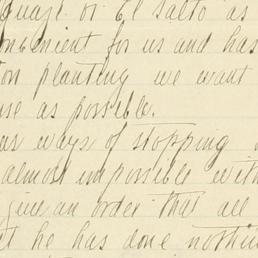 or El Salto as
for us and has
planting we want
as possible.
ways of stopping
almost impossible with
give an order that all
he has done nothing